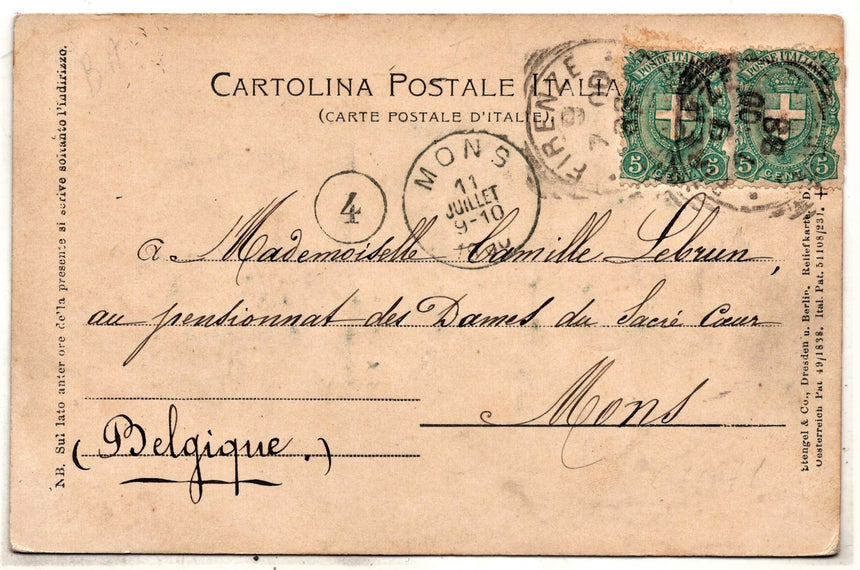 CARTOLINA POSTALE ITALIA
(CARTE POSTALE D'ITALIE)
FIRENZE
POSTE ITALIANE
5 CENT. 5
5 CENT. 5
MONS
11
JUILLET
9-10
4
à Mademoiselle Camille Lebrun,
au pensionnat des Dames du Sacré Cœur
Mons
(Belgique.)
NB. Sul lato anteriore della presente si scrive soltanto l'indirizzo.
Stengel & Co., Dresden u. Berlin. Reliefkarte. D.
Oesterreich Pat. 49/1838. Ital. Pat. 51108/231.